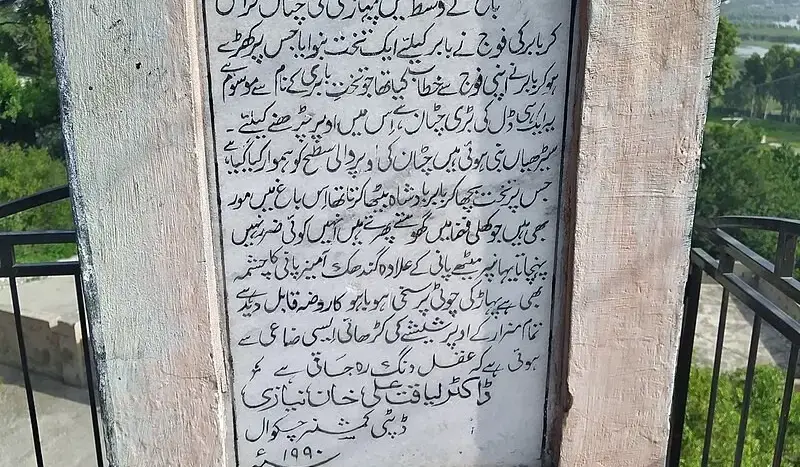 باغ کے وسط میں پہاڑی کی چٹان تراش
کر بابر کی فوج نے بابر کیلئے ایک تخت بنوایا جس پر کھڑے
ہو کر بابر نے اپنی فوج سے خطاب کیا تھا جو تختِ بابری کے نام سے موسوم ہے
یہ ایک ہی ڈل کی بڑی چٹان ہے، اس میں اوپر چڑھنے کیلئے۔
سیڑھیاں بنی ہوئی ہیں چٹان کی اوپر والی سطح کو ہموار کیا گیا ہے
جس پر تخت بچھا کر بابر بادشاہ بیٹھا کرتا تھا اس باغ میں مور
بھی ہیں جو کھلی فضا میں گھومتے پھرتے ہیں انہیں کوئی ضرر نہیں
پہنچاتا یہاں پر میٹھے پانی کے علاوہ گندھک آمیز پانی کا چشمہ
بھی ہے پہاڑ کی چوٹی پر سخی ہو باہو کا روضہ قابل دید ہے
تمام مزار کے اوپر شیشے کی کڑھائی ایسی ضاعی سے
ہوئی ہے کہ عقل دنگ رہ جاتی ہے
ڈاکٹر لیاقت علی خان نیازی
ڈپٹی کمشنر چکوال
۱۹۹۰ء